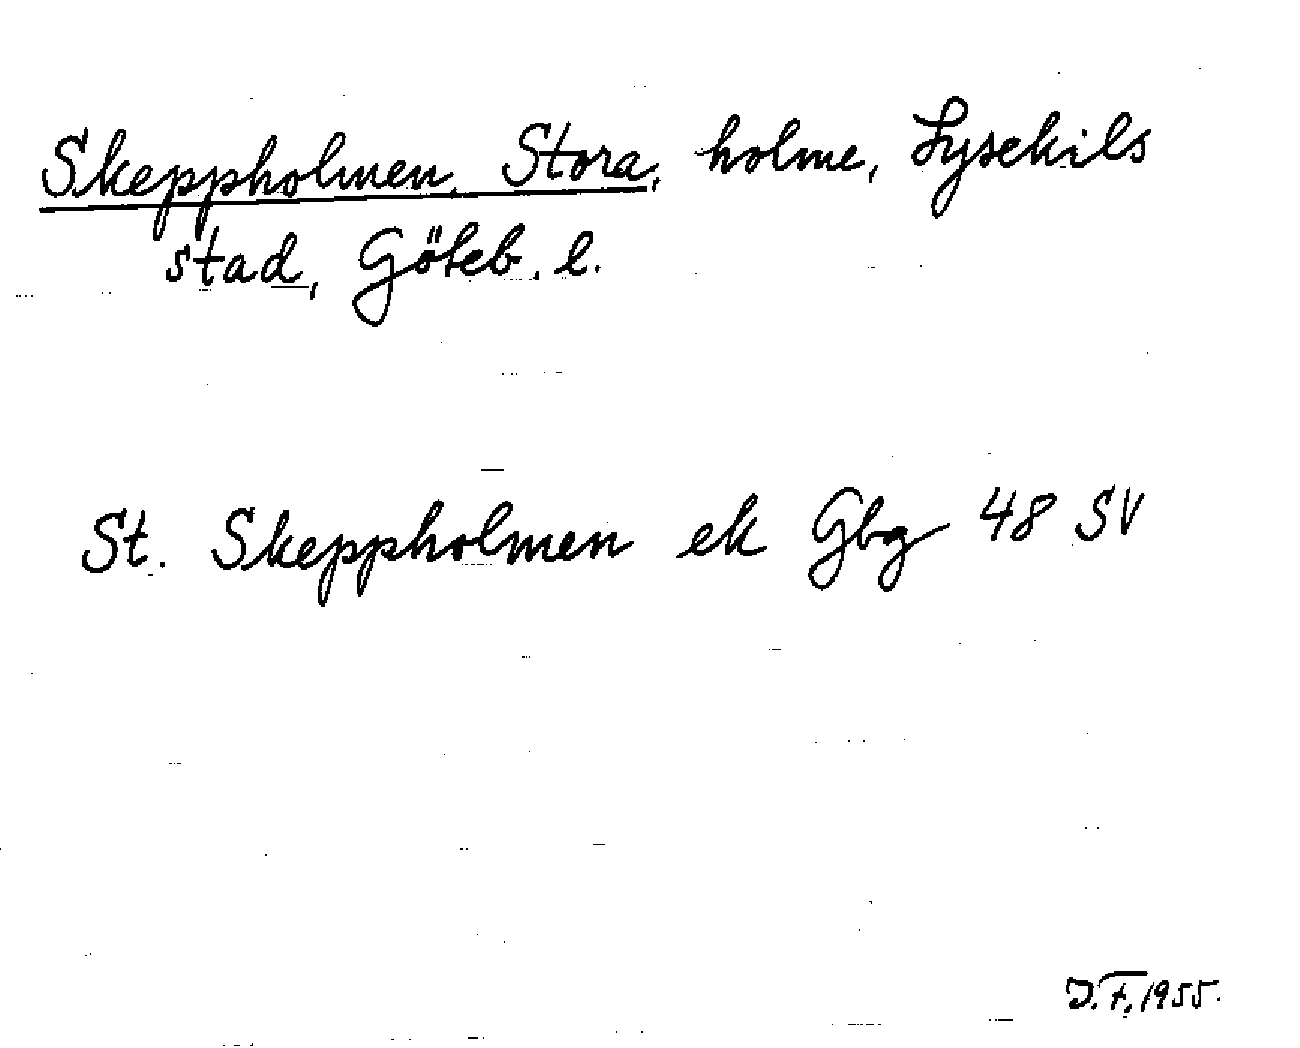 Skeppholmen, Stora, holme, Lysekils
stad, Göteb. l.
St. Skeppholmen ek Gbg 48 SV
J.F. 1955.